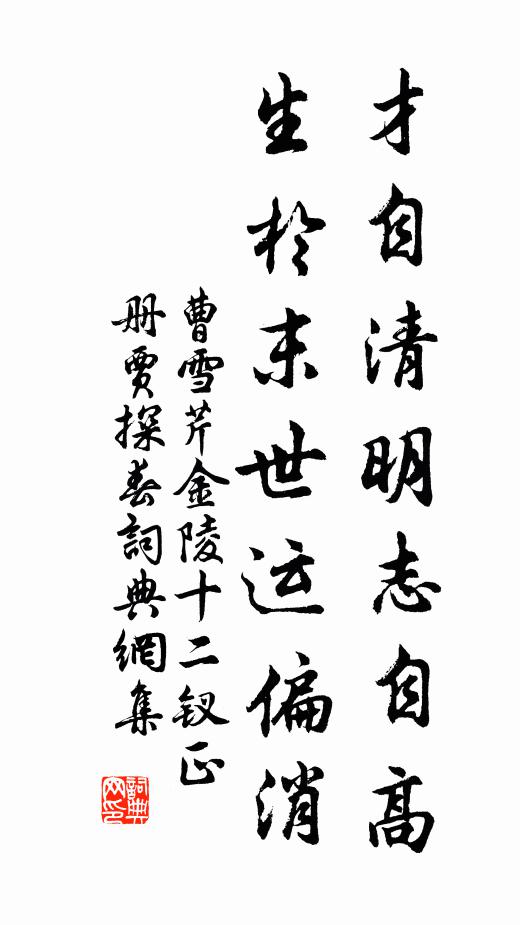 才自清明志自高
生於末世运偏消
曹雪芹金陵十二钗正
册贾探春詞典網集
詞典
网印